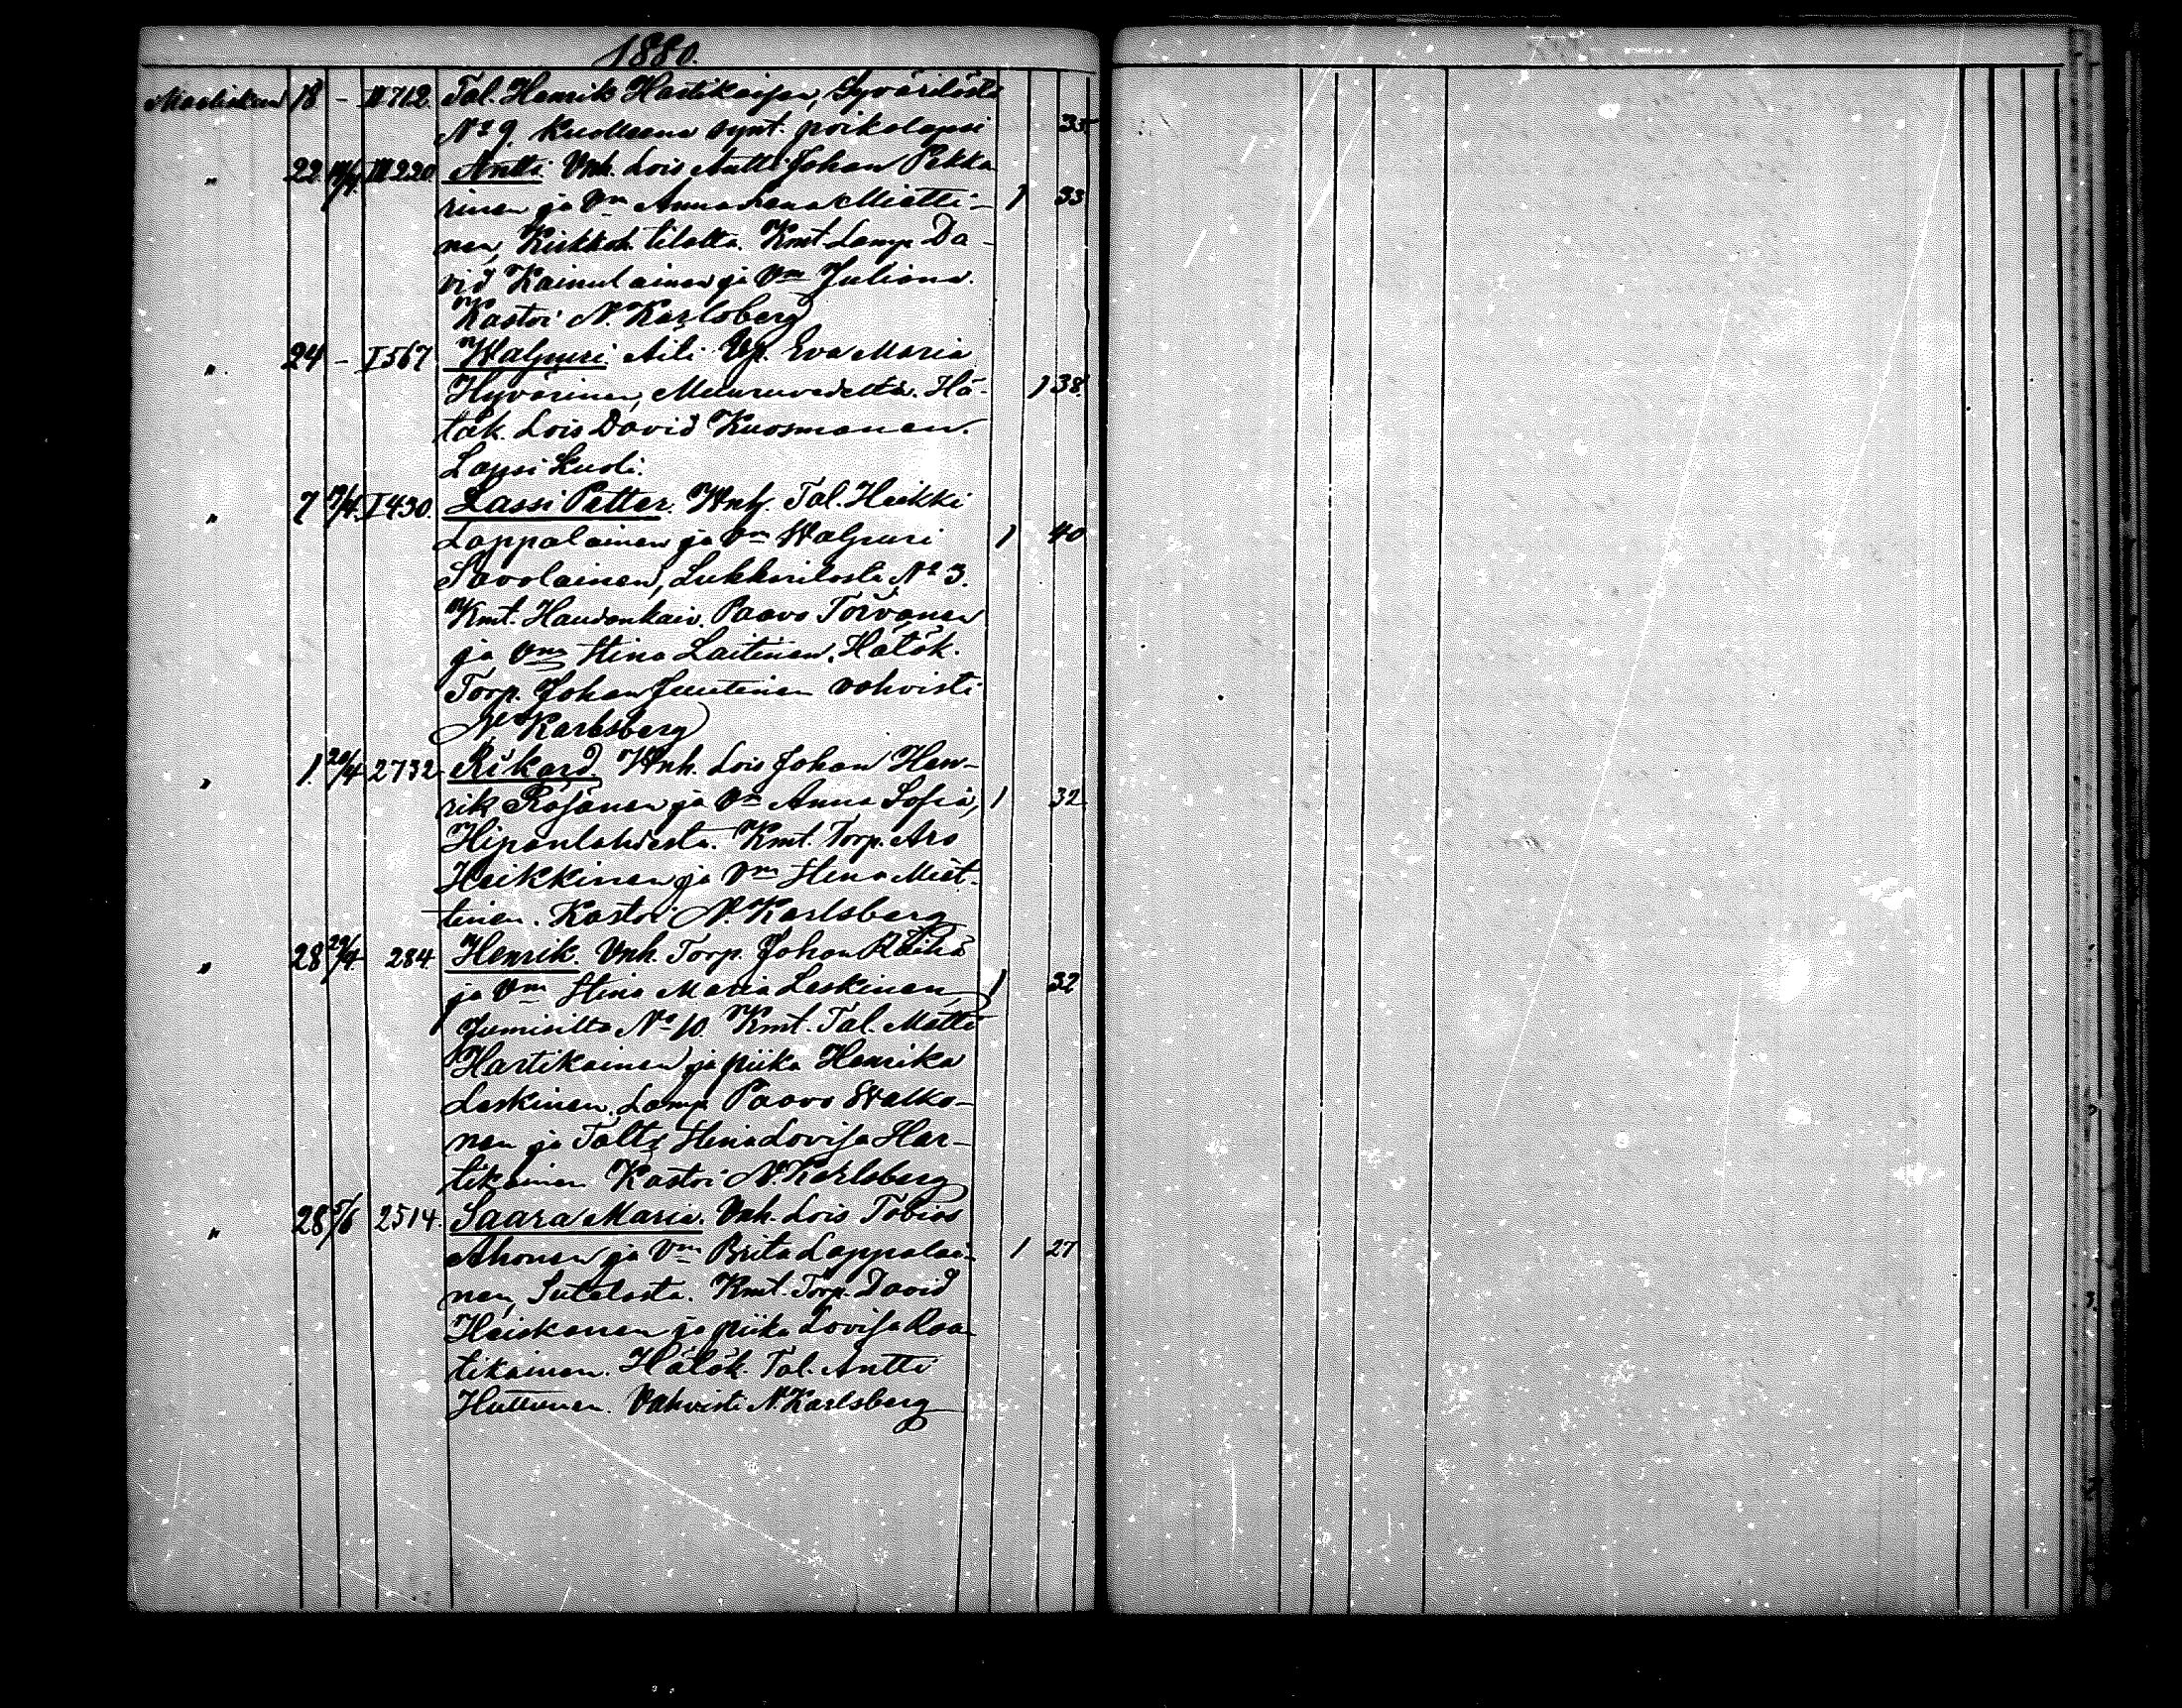 1880.
Maaliskuu 18 – III 712. Tal. Henrik Hartikaisen, Syvärilästä
N:o 9. Kuolleena synt. poikalapsi 35
" 22. III 220. Antti. Vnh. Lois Antti Johan Pekka-
rinen ja Vm Anna Lena Mietti- 1 33
nen, tilalta. Kmt. Lamp. Da-
vid Kainulainen ja Vm Juliana.
Kastoi N. Karlsberg
" 24 – I 567 Walpuri Aili. Vp. Eva Maria
Hyvärinen, Muuruvedeltä. Hä- 1 38.
täk. Lois David Kuosmanen.
Lapsi kuoli.
" 7 /4 I 430. Lassi Petter. Vnh. Tal. Heikki
Lappalainen ja Vm Walpuri 1 40
Savolainen, Lukkarilasta No 3.
Kmt. Haudankaiv. Paavo Toivanen
ja Vmo Stina Laitinen. Hätäk.
Torp. Johan Juutinen vahvisti
N. Karlsberg
" 1. 20/4 2732 Rikard. Vnh. Lois Johan Hen-
rik Räsänen ja Vm Anna Sofia, 1 32
Hipanlahdesta. Kmt. Torp. Aro
Heikkinen ja Vm Stina Miet-
tinen. Kastoi N. Karlsberg
" 28 29/4. 284. Henrik. Vnh. Torp. Johan Räihä
ja Vm Stina Maria Leskinen, 1 32
Jumisilta No 10. Kmt. Tal. Matti
Hartikainen ja piika Henrika
Leskinen, Lamp. Paavo Walko-
nen ja Taltr Stina Lovisa Har-
tikainen. Kastoi N. Karlsberg
" 28 5/6 2514. Saara Maria. Vnh. Lois Tobias
Ahonen ja Vm Brita Lappalai- 1 27
nen, Sutelasta. Kmt. Torp. David
Heiskanen ja piika Lovisa Raa-
tikainen. Hätäk. Tal. Antti
Huttunen. Vahvisti N. Karlsberg